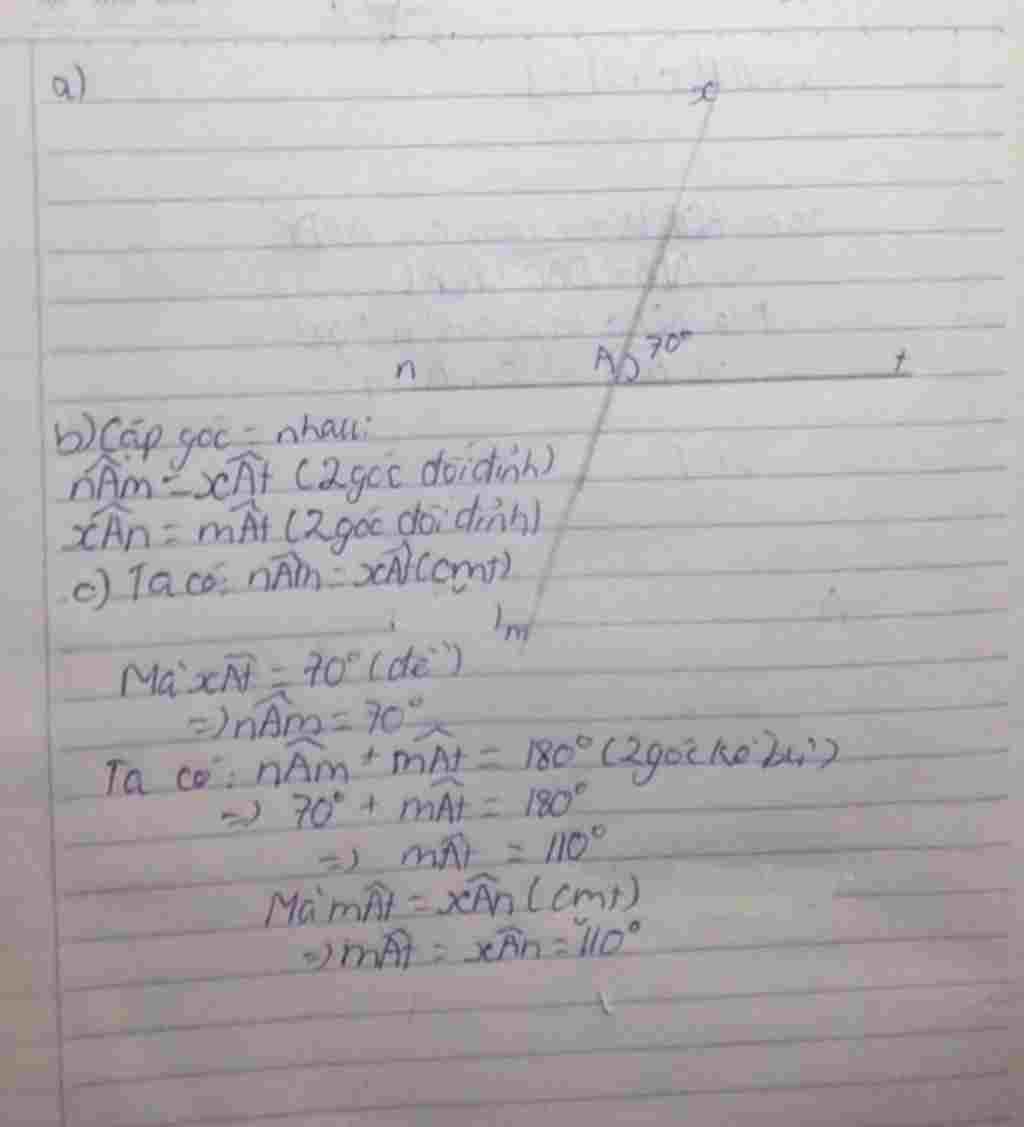 a)
x
n A 70° t
b) Cặp góc = nhau:
nÂm = xÂt (2 góc đối đỉnh)
xÂn = mÂt (2 góc đối đỉnh)
c) Ta có: nÂm = xÂt (cmt)
m
Mà xÂt = 70° (đề)
=> nÂm = 70°
Ta có: nÂm + mÂt = 180° (2 góc kề bù)
=> 70° + mÂt = 180°
=> mÂt = 110°
Mà mÂt = xÂn (cmt)
=> mÂt = xÂn = 110°